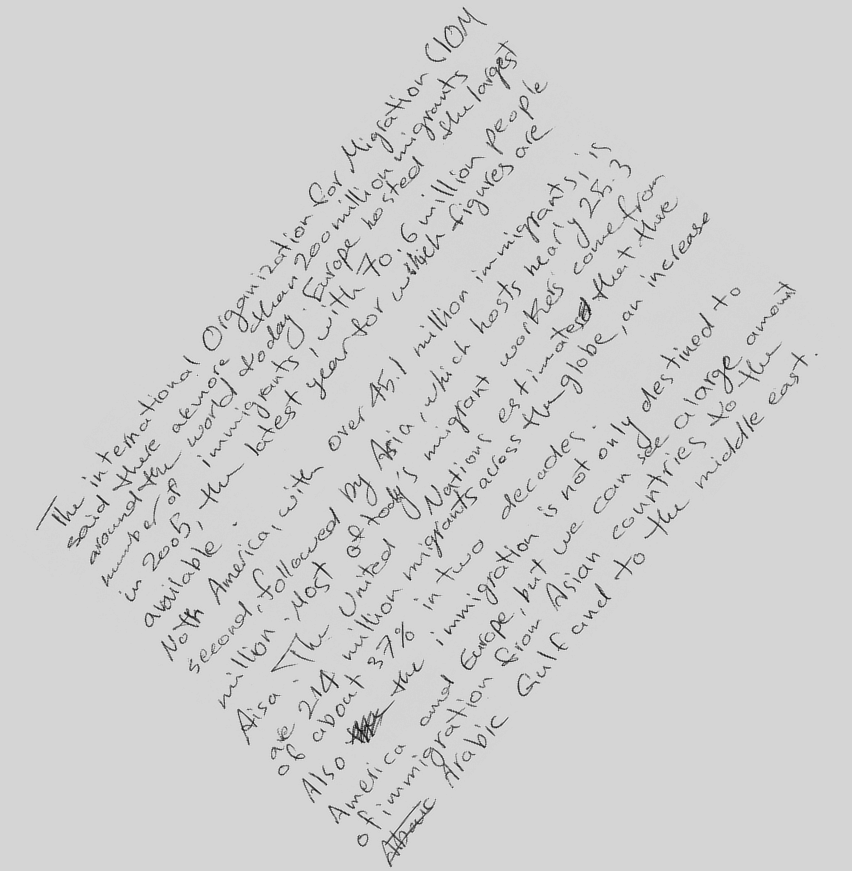 The international Organization for Migration (IOM
said there are more than 200 million migrants
around the world today. Europe hosted the largest
number of immigrants, with 70.6 million people
in 2005, the latest year for which figures are
available.
Noth America, with over 45.1 million immigrants, is
second, followed by Asia, which hosts nearly 25.3
million. Most of today's migrant workers come from
Aisa. The United Nations estimated that there
are 214 million migrants across the globe, an increase
of about 37% in two decades.
Also the immigration is not only destined to
America and Europe, but we can see a large amount
of immigration from Asian countries to the
Arabic Gulf and to the middle east.